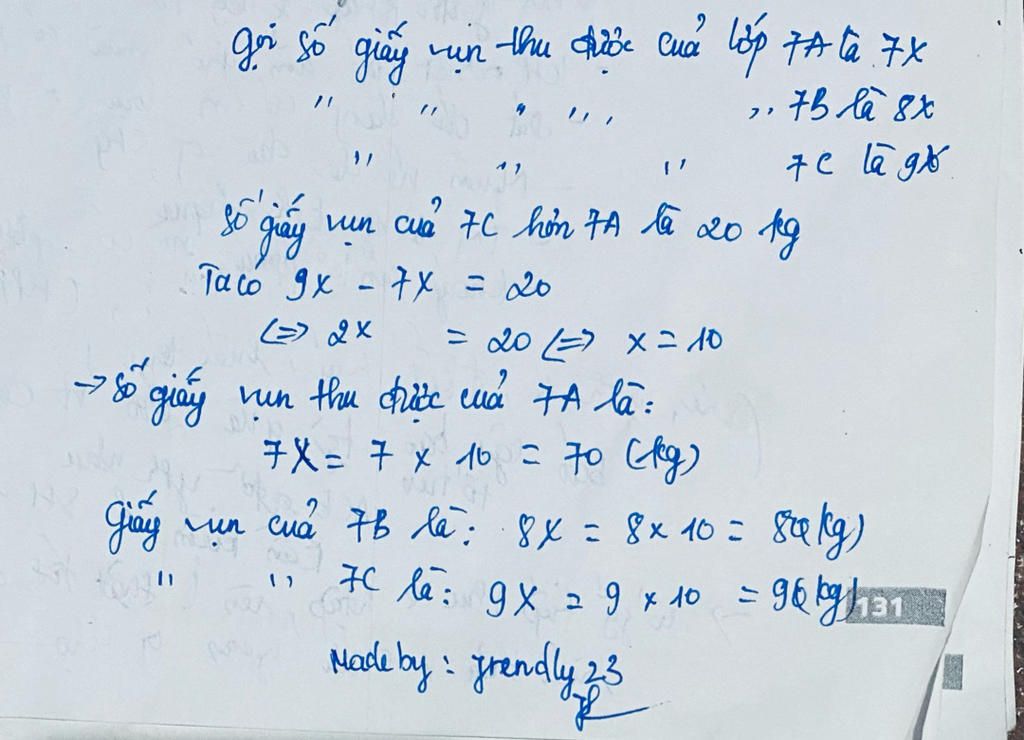 Gọi số giấy vụn thu được của lớp 7A là 7x
" " " " " 7B là 8x
" " " 7C là 9x
Số giấy vụn của 7C hơn 7A là 20 kg
Ta có 9x - 7x = 20
<=> 2x = 20 <=> x = 10
-> Số giấy vụn thu được của 7A là:
7x = 7 x 10 = 70 (kg)
Giấy vụn của 7B là: 8x = 8 x 10 = 80 (kg)
" " 7C là: 9x = 9 x 10 = 90 (kg)
131
Made by: jrendly 23